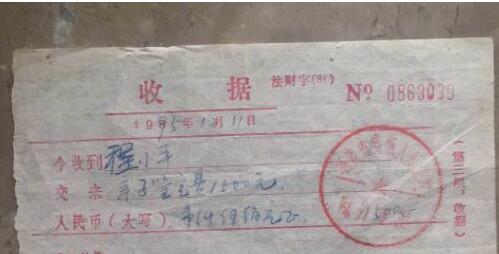 收据 法财字(81) № 0863039
1985年12月11日
今收到 程小平
交来 亲子鉴定费1500元.
人民币（大写） 壹仟伍佰元正
（第二联：收据）